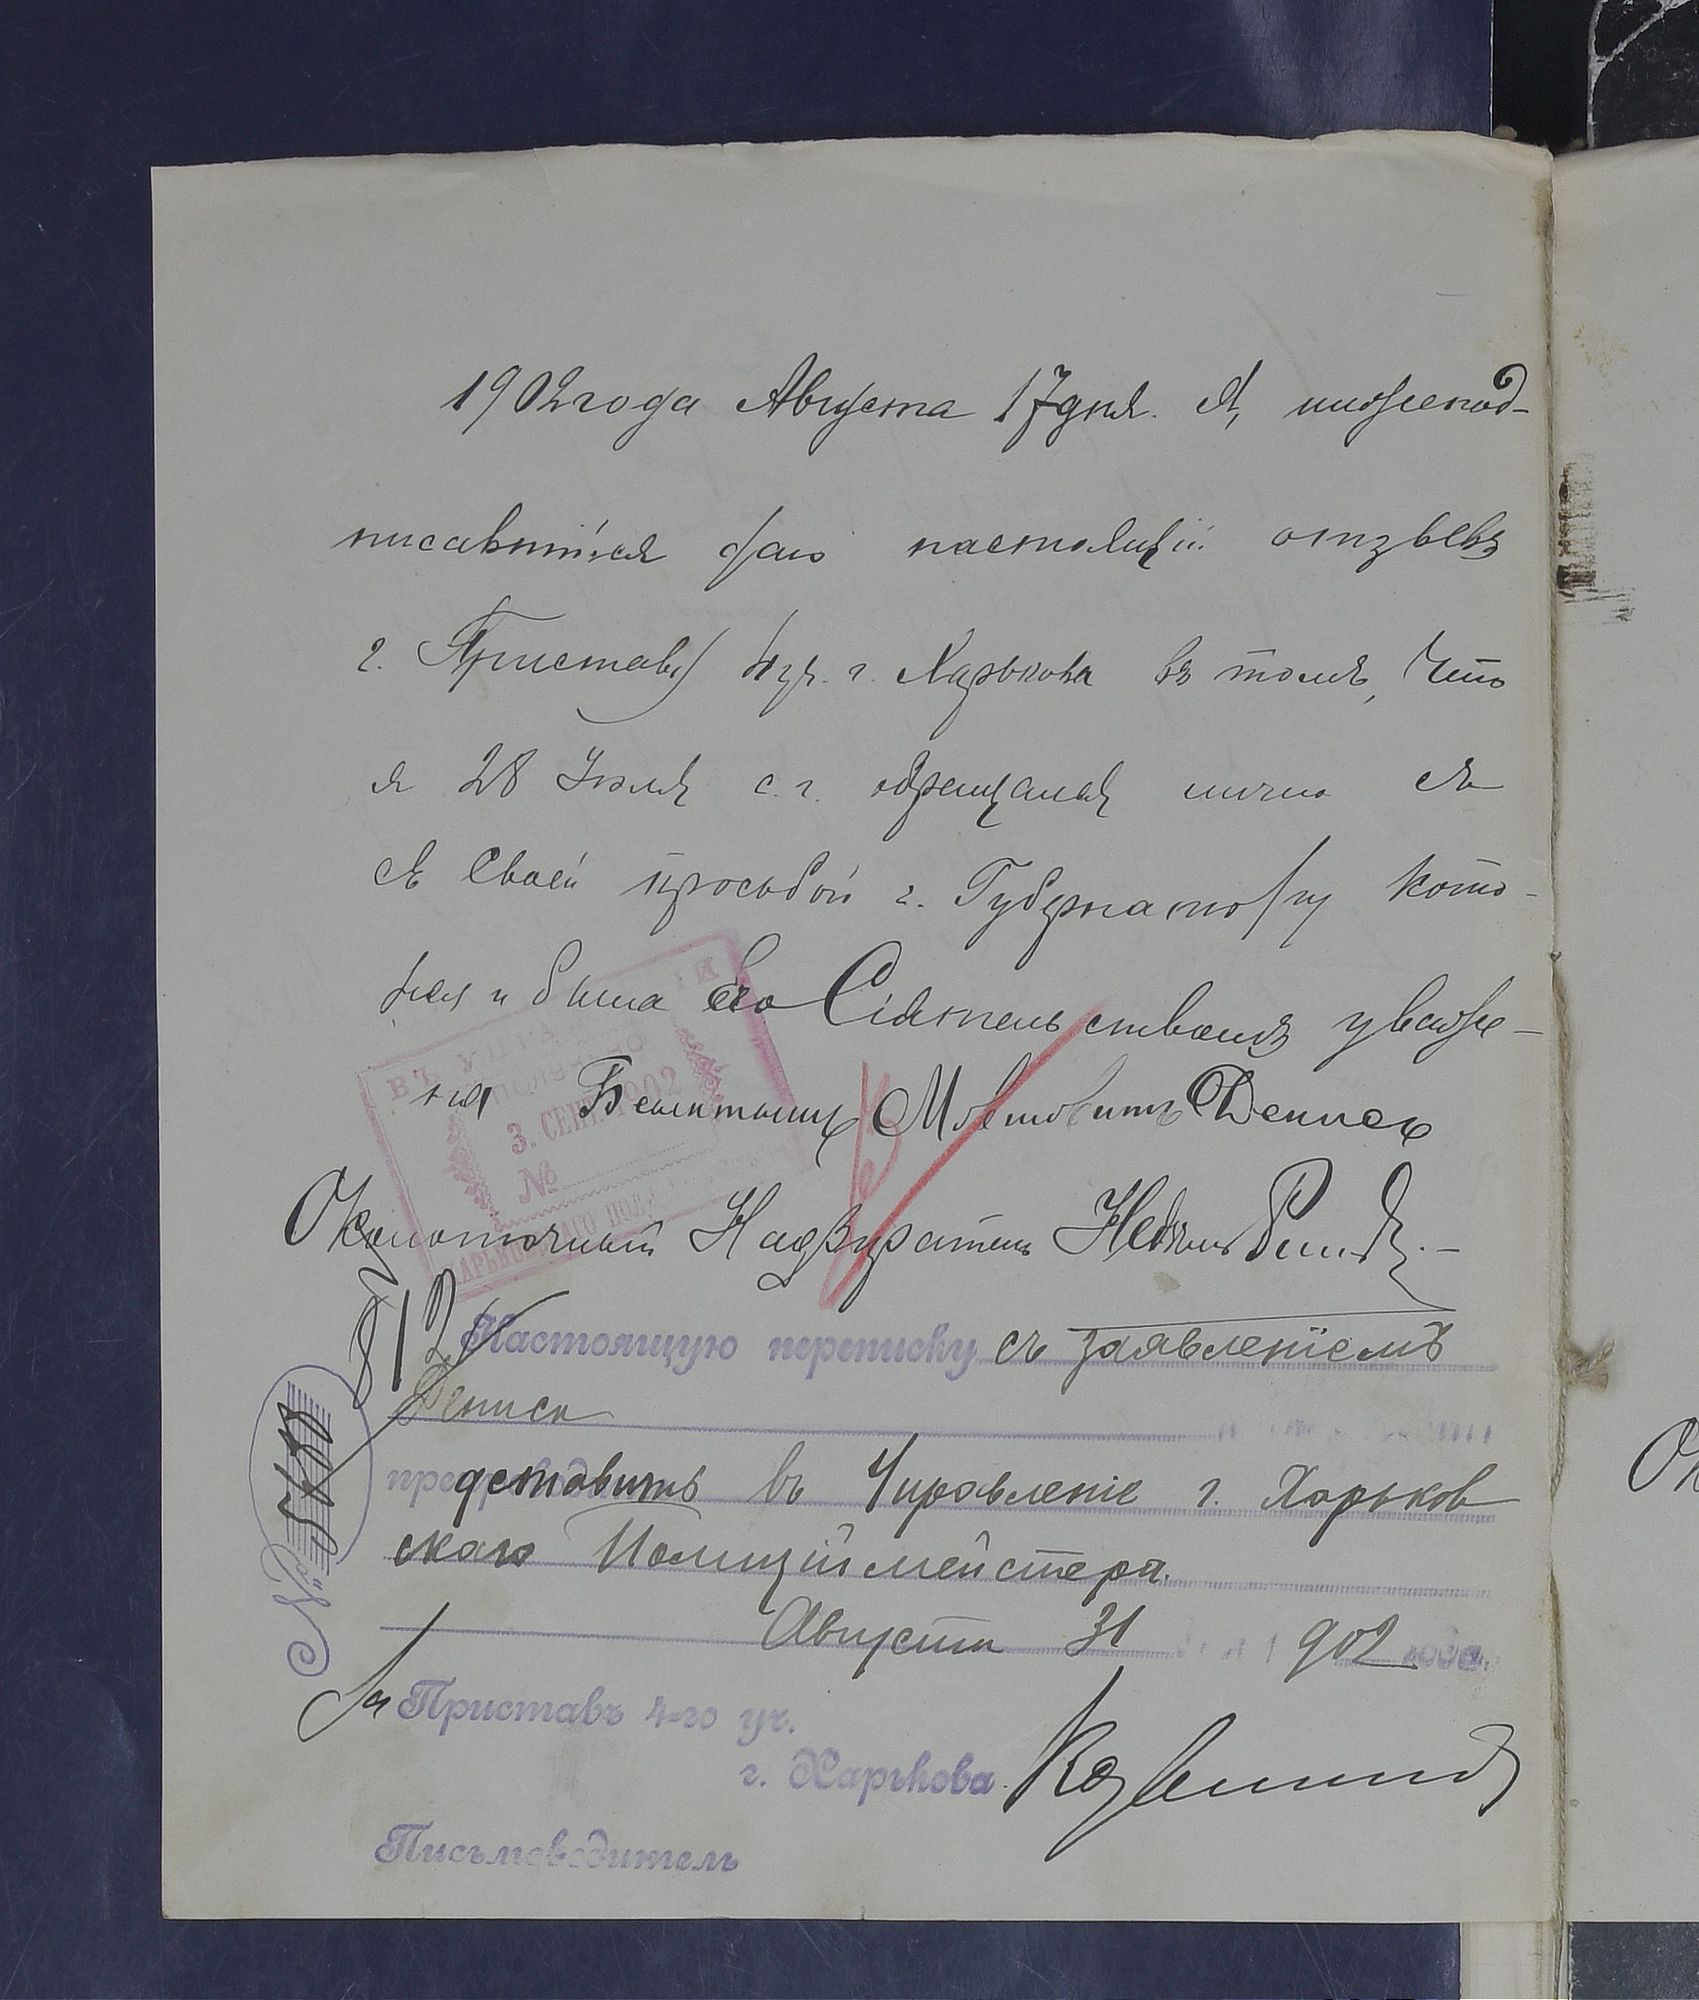 1902 года Августа 17 дня. Я, нижепод-
писавшійся даю настоящій отзывъ
г. Приставу 4 уч. г. Харькова въ томъ, что
я 28 Іюля с. г. обращался лично съ
съ своей просьбой г. Губернатору кото-
рая и была Его Сіятельствомъ уваже-
на
Околоточный Надзиратель
ВЪ УПРАВЛЕНІИ
ПОЛУЧЕНО
3. СЕНТ. 1902
№
ХАРЬКОВСКАГО
812
Настоящую переписку съ заявленіемъ
Дениса
представить въ Управленіе г. Харьков
скаго Полиціймейстера.
Августа 31 1902 года.
№ 5480
За Приставъ 4-го уч.
г. Харькова.
Письмоводитель